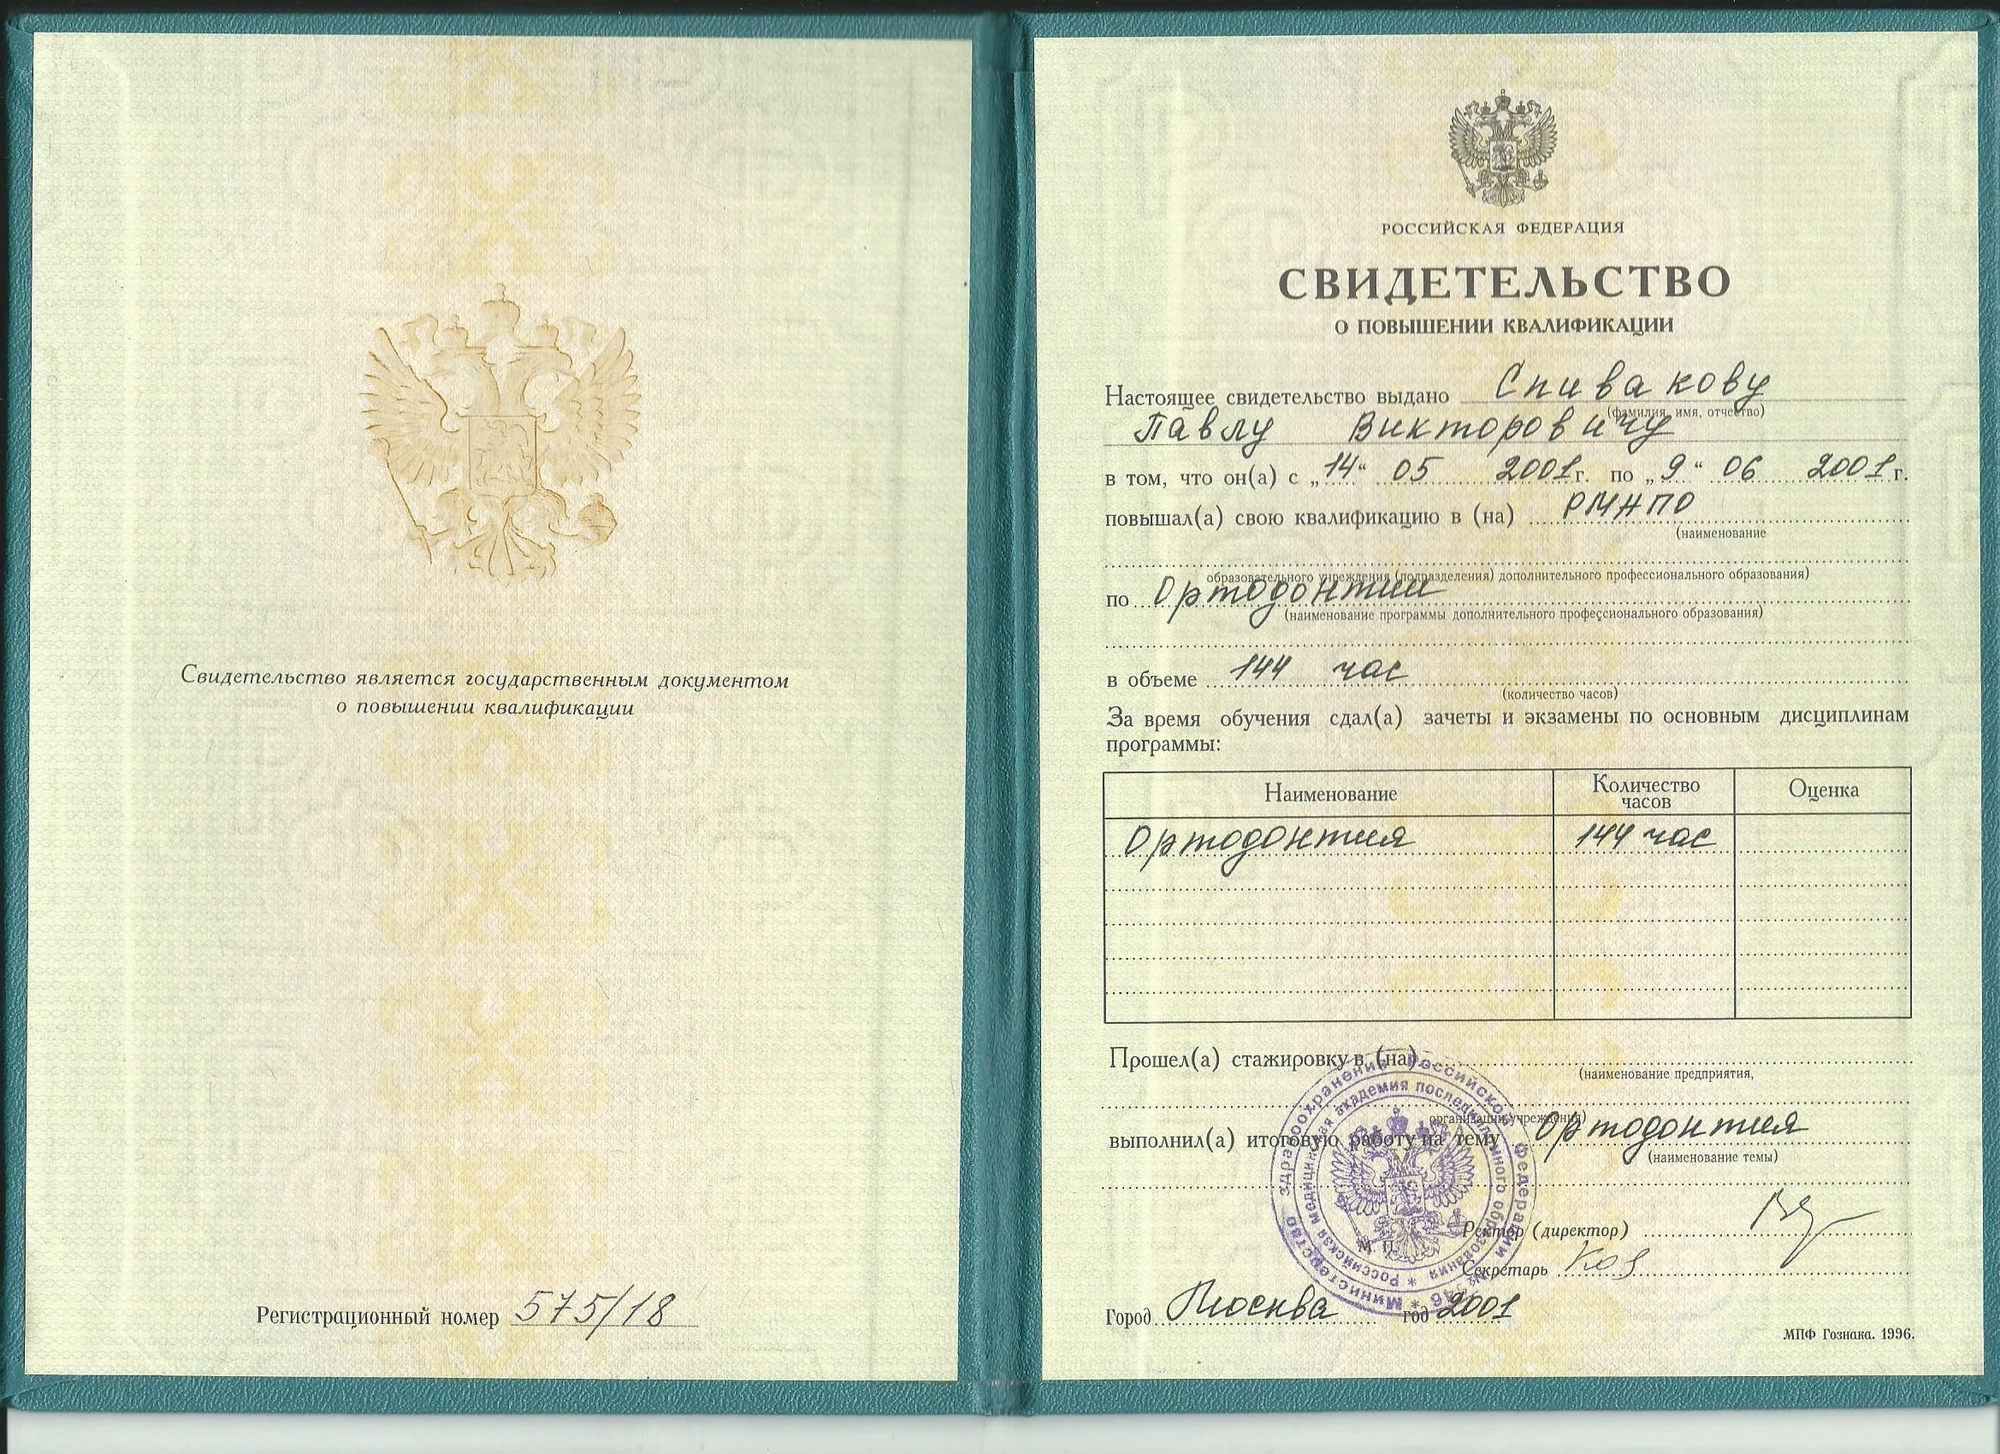 Свидетельство является государственным документом
о повышении квалификации
Регистрационный номер 575/18
РОССИЙСКАЯ ФЕДЕРАЦИЯ
СВИДЕТЕЛЬСТВО
О ПОВЫШЕНИИ КВАЛИФИКАЦИИ
Настоящее свидетельство выдано Спивакову
(фамилия, имя, отчество)
Павлу Викторовичу
в том, что он(а) с „14“ 05 2001 г. по „9“ 06 2001 г.
повышал(а) свою квалификацию в (на) РМАПО
(наименование
образовательного учреждения (подразделения) дополнительного профессионального образования)
по Ортодонтии
(наименование программы дополнительного профессионального образования)
в объеме 144 час
(количество часов)
За время обучения сдал(а) зачеты и экзамены по основным дисциплинам
программы:
Наименование Количество часов Оценка
Ортодонтия 144 час
Прошел(а) стажировку в (на)
(наименование предприятия,
организации, учреждения)
выполнил(а) итоговую работу на тему Ортодонтия
(наименование темы)
Министерство здравоохранения Российской Федерации
Российская медицинская академия последипломного образования
М. П.
Ректор (директор)
Секретарь
Город Москва год 2001
МПФ Гознака. 1996.